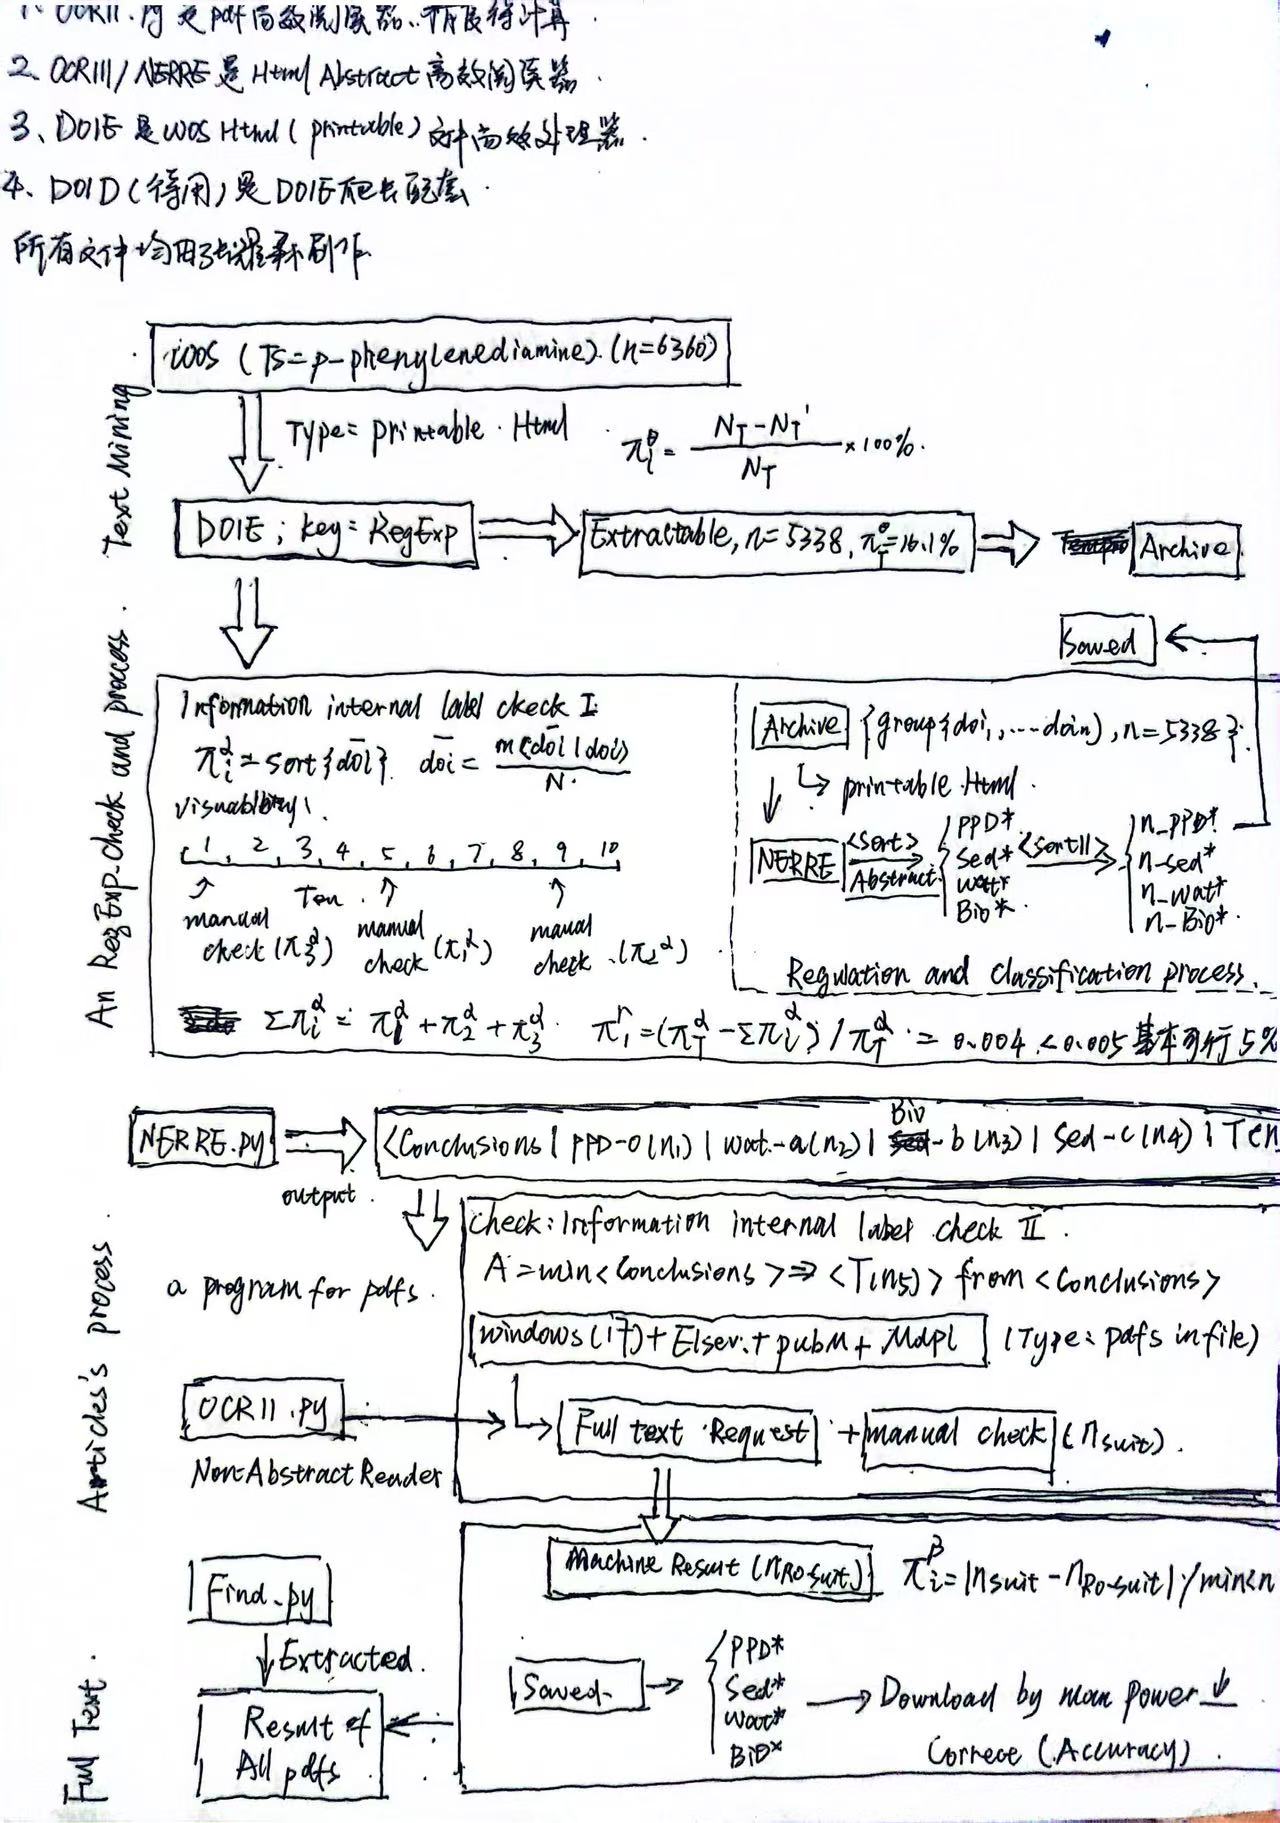 1. OCRII.py 是pdf高效阅读器..精度待计算
2、OCRIII/NERRE是Html Abstract高效阅读器.
3、DOIE是WOS Html(printable)文件高效处理器.
4、DOID(待用)是DOIE爬虫配套.
所有文件均用
WOS (TS=p-phenylenediamine).(n=6360)
Type=printable.Html
π_i^θ = (N_T-N_T')/N_T ×100%.
Text Mining
DOIE; key=RegExp
Extractable, n=5338, π_T^θ=16.1%
Archive
An RegExp-check and process.
Saved
Information internal label ckeck I:
π_i^α=sort{doi}. doi= m<doi|doi>/N.
visuability:
1, 2, 3, 4, 5, 6, 7, 8, 9, 10
Ten.
manual check (π_3^α)
manual check (π_1^α)
manual check.(π_2^α)
Archive {group{doi,....doin}, n=5338}.
printable.Html.
NERRE <sort> Abstract.
PPD*
Sed*
Wat*
Bio*.
<sortII>
n_PPD*
n-sed*
n_wat*
n-Bio*.
Regulation and classification process.
Σπ_i^α = π_1^α+π_2^α+π_3^α. π_1^r=(π_T^α-Σπ_i^α)/π_T^α = 0.004<0.005基本可行5%
NERRE.py
output.
<Conclusions|PPD-o(n1)|wat-a(n2)|Bio-b(n3)|Sed-c(n4)|Ten
Articles's process.
check: Information internal label check II.
A=min<Conclusions>⇒<T(n5)> from <Conclusions>
a program for pdfs.
windows(17)+Elsev.+pubM+Mdpl (Type: pdfs in file)
OCRII.py
Full text Request + manual check (n_suit).
Non-Abstract Reader
Machine Result (n_Ro-suit)
π_i^β=|n_suit-n_Ro-suit|/min<n
Find.py
Extracted.
Full Text.
Saved.
PPD*
Sed*
Wat*
BiO*
Download by man power
Correce (Accuracy).
Result of
All pdfs